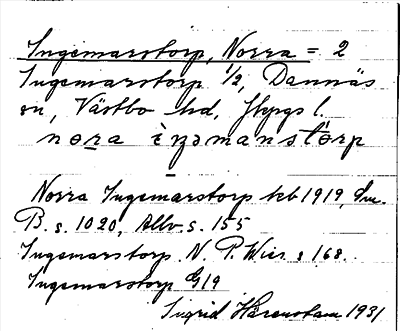 Ingemarstorp, Norra = 2
Ingemarstorp 1/2, Dannäs
sn, Västbo hd, Jkpgs l.
nora ìŋəmanstorp
Norra Ingemarstorp kb 1919,
B. s. 1020, Allv. s. 155
Ingemarstorp N. P. Wies. s 168.
Ingemarstorp G19
Sigrid 1931